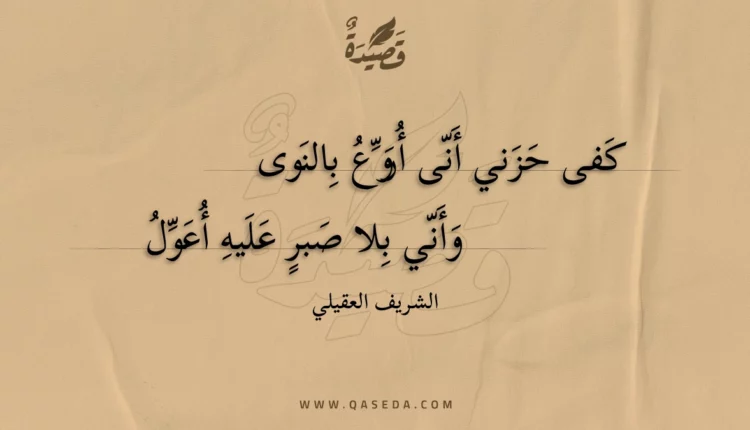 قَصِيْدَةٌ
كَفى حَزَني أَنّى أُرَوِّعُ بِالنَوى
وَأَنّي بِلا صَبرٍ عَلَيهِ أُعَوِّلُ
الشريف العقيلي
WWW.QASEDA.COM